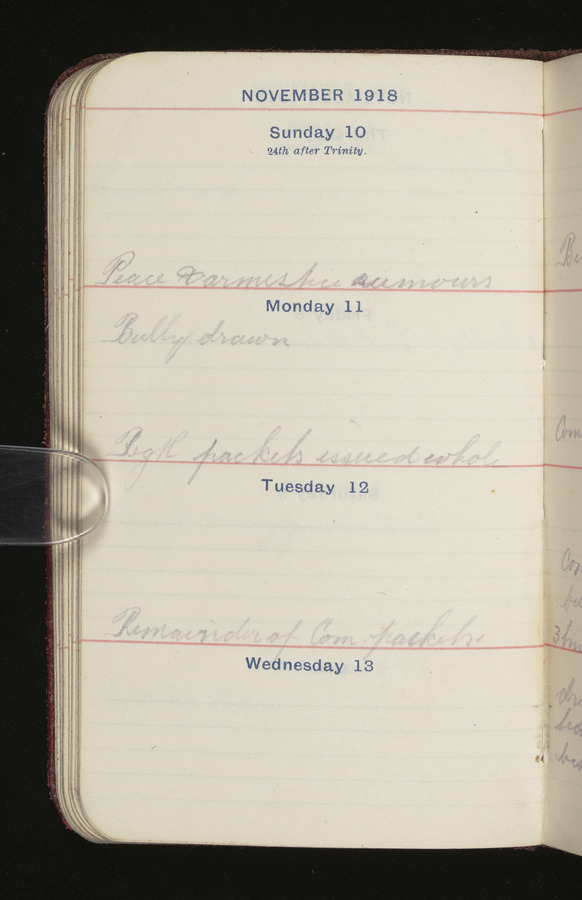 NOVEMBER 1918
Sunday 10
24th after Trinity.
Peace & armistice rumours
Monday 11
Bully drawn
packets issued whole
Tuesday 12
Remainder of Com. packets
Wednesday 13
Com
3